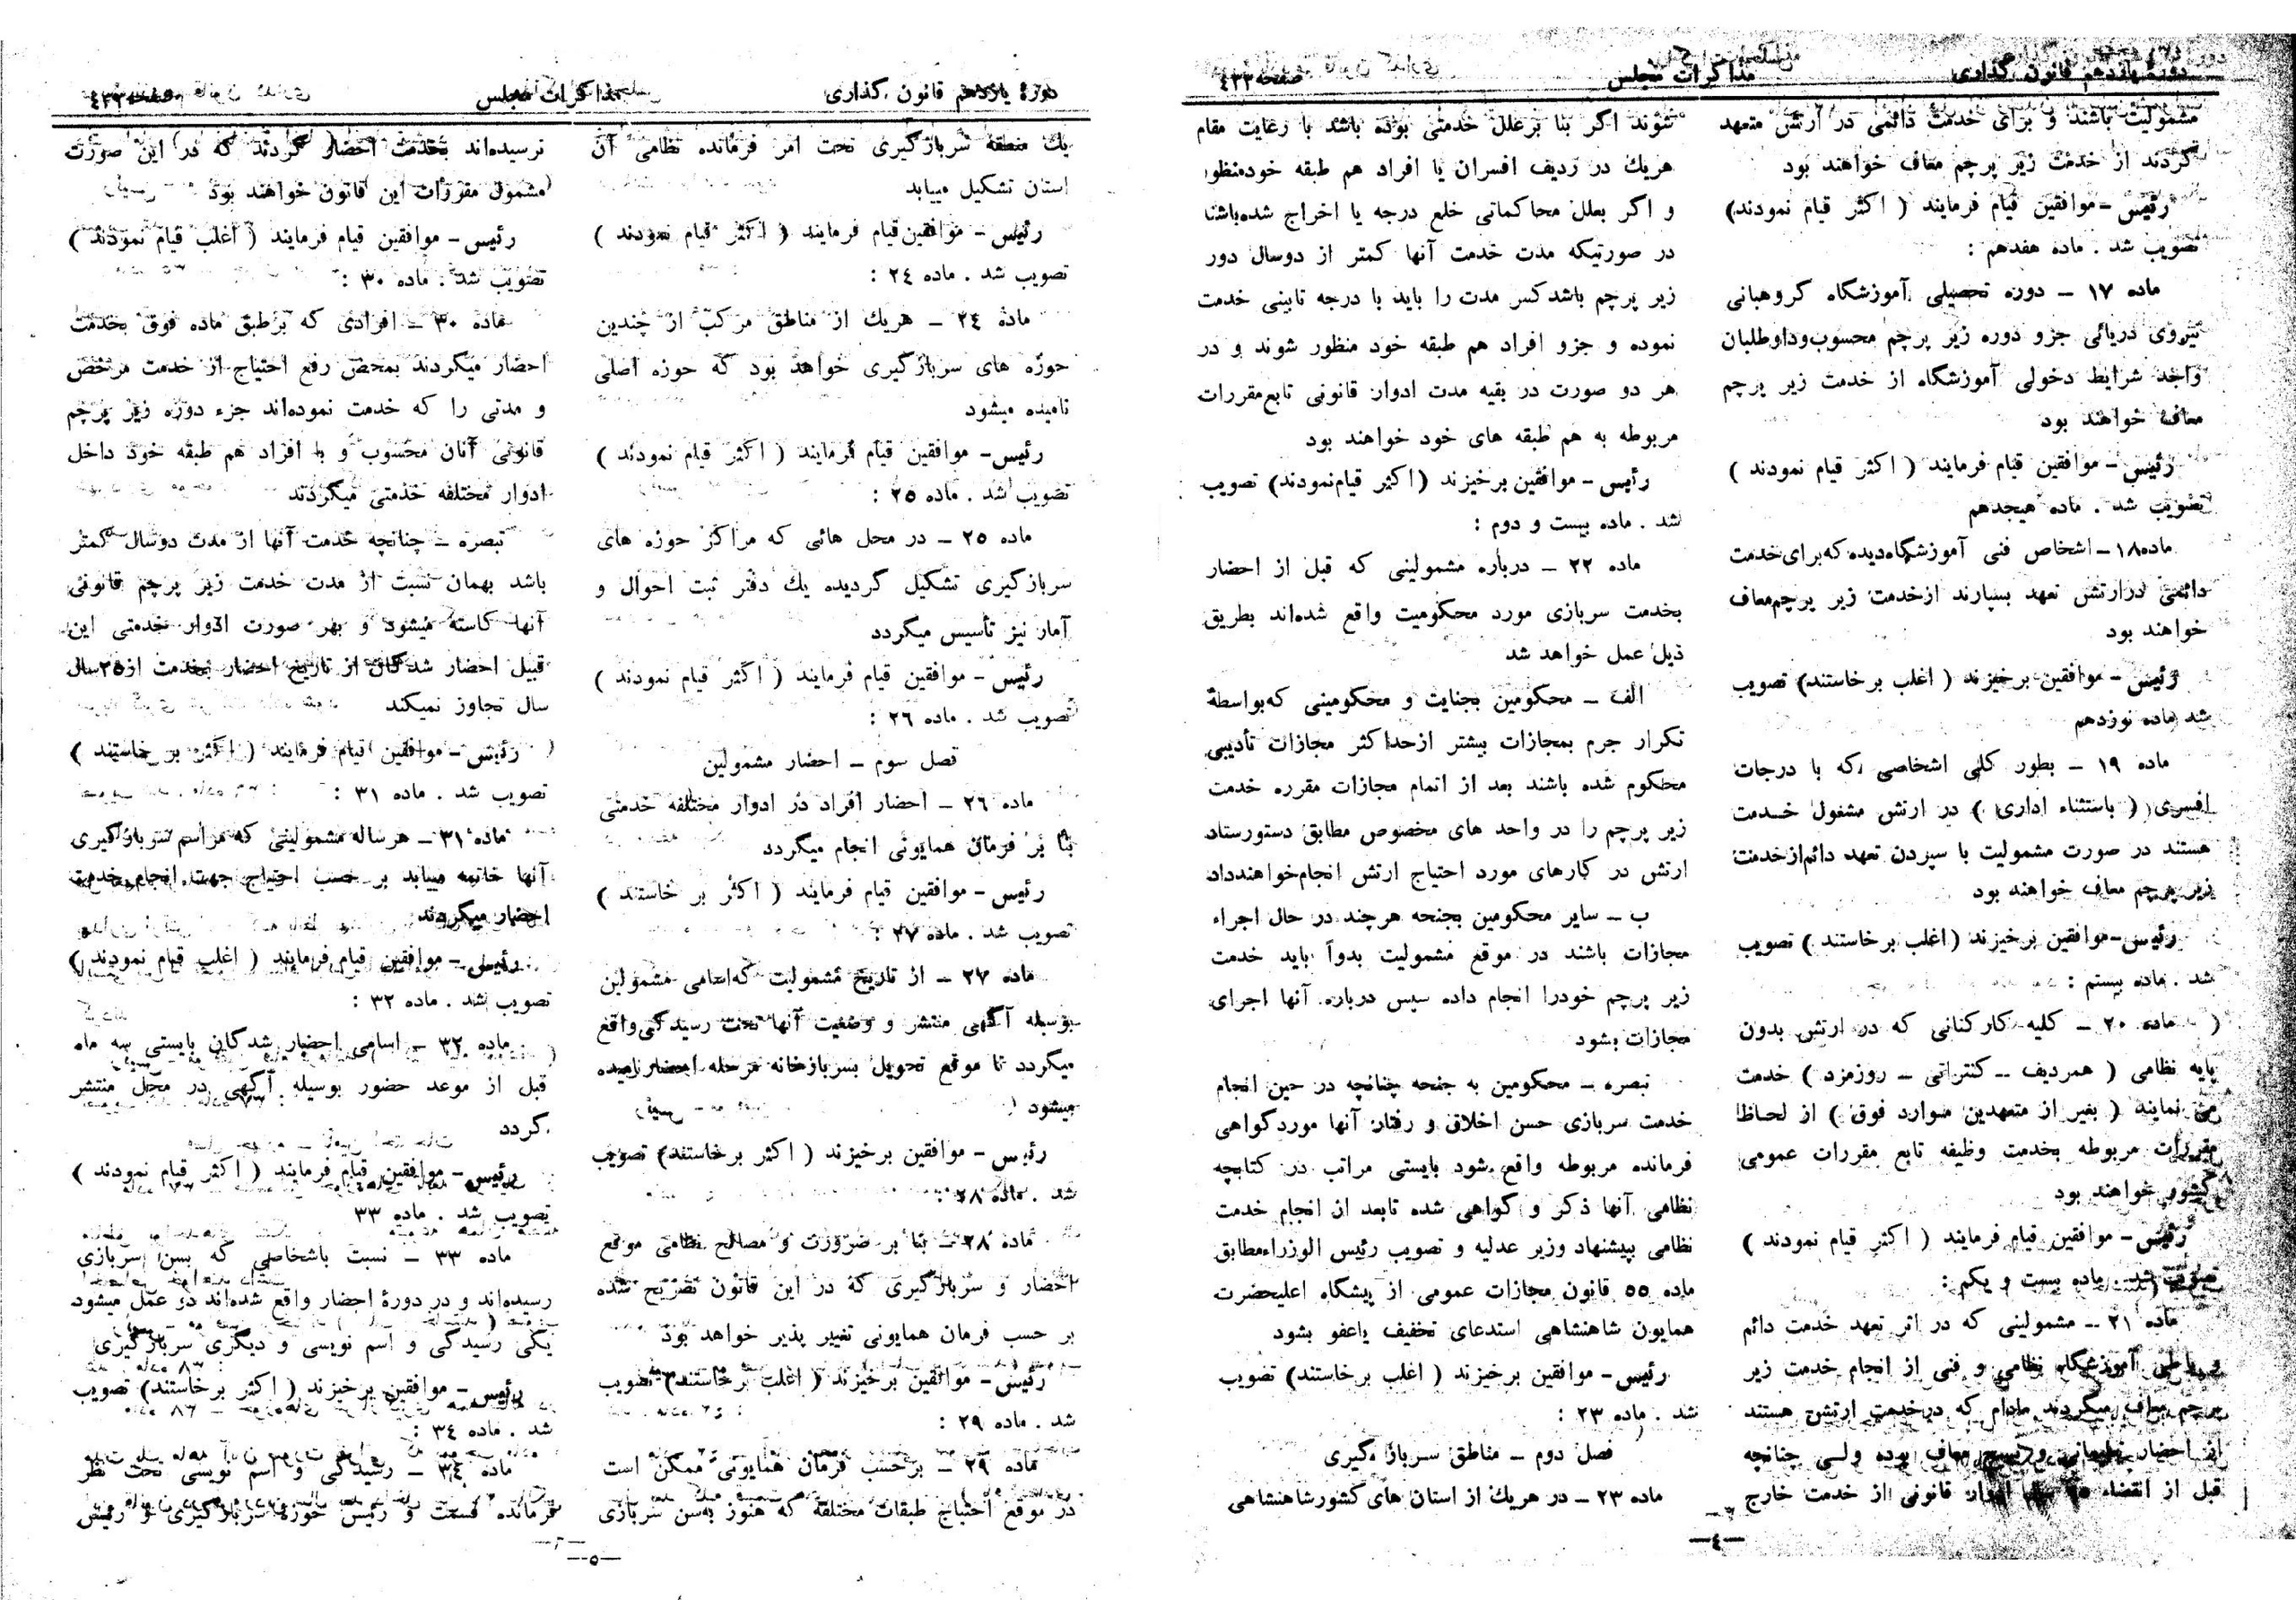 دورهٔ یازدهم قانون گذاری
مذاکرات مجلس
صفحه ۴۳۳
مشمولیت باشند و برای خدمت دائمی در ارتش متعهد
گردند از خدمت زیر پرچم معاف خواهند بود
رئیس - موافقین قیام فرمایند ( اکثر قیام نمودند)
تصویب شد . ماده هفدهم :
ماده ۱۷ - دوره تحصیلی آموزشگاه گروهبانی
نیروی دریائی جزو دوره زیر پرچم محسوب وداوطلبان
واجد شرایط دخولی آموزشگاه از خدمت زیر پرچم
معاف خواهند بود
رئیس - موافقین قیام فرمایند ( اکثر قیام نمودند )
تصویب شد . ماده هیجدهم
ماده ۱۸ - اشخاص فنی آموزشگاه‌دیده که برای خدمت
دائمی درارتش تعهد بسپارند ازخدمت زیر پرچم معاف
خواهند بود
رئیس - موافقین برخیزند ( اغلب برخاستند) تصویب
شد ماده نوزدهم
ماده ۱۹ - بطور کلی اشخاصی که با درجات
افسری ( باستثناء اداری ) در ارتش مشغول خدمت
هستند در صورت مشمولیت با سپردن تعهد دائم ازخدمت
زیر پرچم معاف خواهند بود
رئیس - موافقین برخیزند (اغلب برخاستند ) تصویب
شد . ماده بیستم :
ماده ۲۰ - کلیه کارکنانی که در ارتش بدون
پایه نظامی ( همردیف - کنتراتی - روزمزد ) خدمت
می نمایند ( بغیر از متعهدین موارد فوق ) از لحاظ
مقررات مربوطه بخدمت وظیفه تابع مقررات عمومی
کشور خواهند بود
رئیس - موافقین قیام فرمایند ( اکثر قیام نمودند )
تصویب شد . ماده بیست و یکم :
ماده ۲۱ - مشمولینی که در اثر تعهد خدمت دائم
آموزشگاه نظامی و فنی از انجام خدمت زیر
پرچم معاف میگردند مادام که درخدمت ارتش هستند
از احضار معاف بوده ولی چنانچه
قبل از انقضاء ادوار قانونی از خدمت خارج
شوند اگر بنا برعلل خدمتی بوده باشد با رعایت مقام
هریك در ردیف افسران یا افراد هم طبقه خودمنظور
و اگر بعلل محاکماتی خلع درجه یا اخراج شده‌باشند
در صورتیکه مدت خدمت آنها کمتر از دوسال دور
زیر پرچم باشدکسر مدت را باید با درجه تابینی خدمت
نموده و جزو افراد هم طبقه خود منظور شوند و در
هر دو صورت در بقیه مدت ادوار قانونی تابع مقررات
مربوطه به هم طبقه های خود خواهند بود
رئیس - موافقین برخیزند (اکثر قیام نمودند) تصویب
شد . ماده بیست و دوم :
ماده ۲۲ - درباره مشمولینی که قبل از احضار
بخدمت سربازی مورد محکومیت واقع شده‌اند بطریق
ذیل عمل خواهد شد
الف - محکومین بجنایت و محکومینی که‌بواسطهٔ
تکرار جرم بمجازات بیشتر ازحداکثر مجازات تأدیبی
محکوم شده باشند بعد از اتمام مجازات مقرره خدمت
زیر پرچم را در واحد های مخصوص مطابق دستورستاد
ارتش در کارهای مورد احتیاج ارتش انجام‌خواهندداد
ب - سایر محکومین بجنحه هرچند در حال اجراء
مجازات باشند در موقع مشمولیت بدواً باید خدمت
زیر پرچم خودرا انجام داده سپس درباره آنها اجرای
مجازات بشود
تبصره - محکومین به جنحه چنانچه در حین انجام
خدمت سربازی حسن اخلاق و رفتار آنها موردگواهی
فرمانده مربوطه واقع شود بایستی مراتب در کتابچه
نظامی آنها ذکر و گواهی شده تابعد از انجام خدمت
نظامی بپیشنهاد وزیر عدلیه و تصویب رئیس الوزراءمطابق
ماده ۵۵ قانون مجازات عمومی از پیشگاه اعلیحضرت
همایون شاهنشاهی استدعای تخفیف یاعفو بشود
رئیس - موافقین برخیزند ( اغلب برخاستند) تصویب
شد . ماده ۲۳ :
فصل دوم - مناطق سربازگیری
ماده ۲۳ - در هریك از استان های کشورشاهنشاهی
-٤-
دورهٔ یازدهم قانون گذاری
مذاکرات مجلس
یك منطقه سربازگیری تحت امر فرمانده نظامی آن
استان تشکیل مییابد
رئیس - موافقین قیام فرمایند ( اکثر قیام نمودند )
تصویب شد . ماده ۲۴ :
ماده ۲۴ - هریك از مناطق مرکب از چندین
حوزه های سربازگیری خواهد بود که حوزه اصلی
نامیده میشود
رئیس - موافقین قیام فرمایند ( اکثر قیام نمودند )
تصویب شد . ماده ۲۵ :
ماده ۲۵ - در محل هائی که مراکز حوزه های
سربازگیری تشکیل گردیده یك دفتر ثبت احوال و
آمار نیز تأسیس میگردد
رئیس - موافقین قیام فرمایند ( اکثر قیام نمودند )
تصویب شد . ماده ۲۶ :
فصل سوم - احضار مشمولین
ماده ۲۶ - احضار افراد در ادوار مختلفه خدمتی
بنا بر فرمان همایونی انجام میگردد
رئیس - موافقین قیام فرمایند ( اکثر بر خاستند )
تصویب شد . ماده ۲۷ :
ماده ۲۷ - از تاریخ مشمولیت که‌اسامی مشمولین
بوسیله آگهی منتشر و وضعیت آنها تحت رسیدگی واقع
میگردد تا موقع تحویل بسربازخانه مرحله احضارنامیده
میشود
رئیس - موافقین برخیزند ( اکثر برخاستند) تصویب
شد . ماده ۲۸ :
ماده ۲۸ - بنا بر ضرورت و مصالح نظامی موقع
احضار و سربازگیری که در این قانون تصریح شده
بر حسب فرمان همایونی تغییر پذیر خواهد بود
رئیس - موافقین برخیزند ( اغلب برخاستند) تصویب
شد . ماده ۲۹ :
ماده ۲۹ - برحسب فرمان همایونی ممکن است
در موقع احتیاج طبقات مختلفه که هنوز به‌سن سربازی
نرسیده‌اند بخدمت احضار گردند که در این صورت
مشمول مقررات این قانون خواهند بود
رئیس - موافقین قیام فرمایند ( اغلب قیام نمودند )
تصویب شد . ماده ۳۰ :
ماده ۳۰ - افرادی که برطبق ماده فوق بخدمت
احضار میگردند بمحض رفع احتیاج از خدمت مرخص
و مدتی را که خدمت نموده‌اند جزء دوره زیر پرچم
قانونی آنان محسوب و با افراد هم طبقه خود داخل
ادوار مختلفه خدمتی میگردند
تبصره - چنانچه خدمت آنها از مدت دوسال کمتر
باشد بهمان نسبت از مدت خدمت زیر پرچم قانونی
آنها کاسته میشود و بهر صورت ادوار خدمتی این
قبیل احضار شدگان از تاریخ احضار بخدمت از۲۵سال
سال تجاوز نمیکند
رئیس - موافقین قیام فرمایند ( اکثر بر خاستند )
تصویب شد . ماده ۳۱ :
ماده ۳۱ - هرساله مشمولینی که مراسم سربازگیری
آنها خاتمه مییابد بر حسب احتیاج جهت انجام خدمت
احضار میگردند
رئیس - موافقین قیام فرمایند ( اغلب قیام نمودند )
تصویب شد . ماده ۳۲ :
ماده ۳۲ - اسامی احضار شدگان بایستی سه ماه
قبل از موعد حضور بوسیله آگهی در محل منتشر
گردد
رئیس - موافقین قیام فرمایند ( اکثر قیام نمودند )
تصویب شد . ماده ۳۳
ماده ۳۳ - نسبت باشخاصی که بسن سربازی
رسیده‌اند و در دورهٔ احضار واقع شده‌اند دو عمل میشود
یکی رسیدگی و اسم نویسی و دیگری سربازگیری
رئیس - موافقین برخیزند ( اکثر برخاستند) تصویب
شد . ماده ۳۴ :
ماده ۳۴ - رسیدگی و اسم نویسی تحت نظر
فرمانده قسمت و رئیس حوزه سربازگیری و رئیس
-۵-